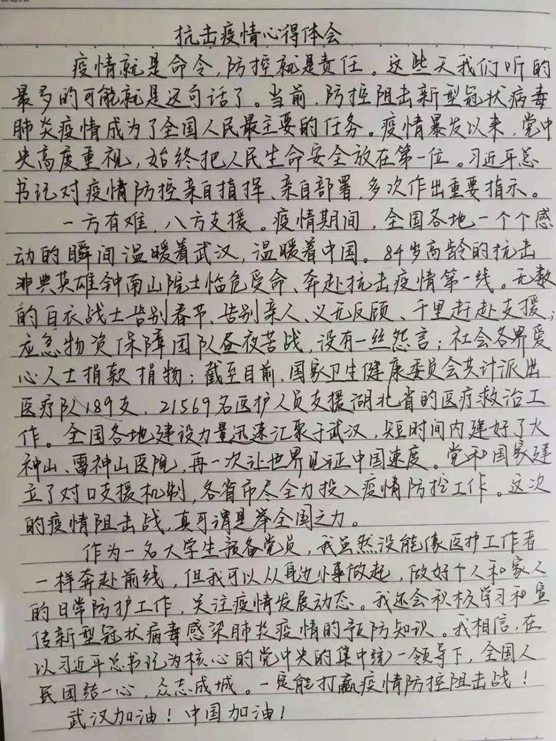 抗击疫情心得体会
疫情就是命令,防控就是责任。这些天我们听的
最多的可能就是这句话了。当前,防控阻击新型冠状病毒
肺炎疫情成为了全国人民最主要的任务。疫情暴发以来,党中
央高度重视,始终把人民生命安全放在第一位。习近平总
书记对疫情防控亲自指挥、亲自部署,多次作出重要指示。
一方有难,八方支援。疫情期间,全国各地一个个感
动的瞬间温暖着武汉,温暖着中国。84岁高龄的抗击
非典英雄钟南山院士临危受命、奔赴抗击疫情第一线。无数
的白衣战士告别春节、告别亲人、义无反顾、千里赶赴支援;
应急物资保障团队昼夜苦战,没有一丝怨言;社会各界爱
心人士捐款捐物;截至目前,国家卫生健康委员会共计派出
医疗队189支,21569名医护人员支援湖北省的医疗救治工
作。全国各地建设力量迅速汇聚于武汉,短时间内建好了火
神山、雷神山医院,再一次让世界见证中国速度。党和国家建
立了对口支援机制,各省市尽全力投入疫情防控工作。这次
的疫情阻击战,真可谓是举全国之力。
作为一名大学生预备党员,我虽然没能像医护工作者
一样奔赴前线,但我可以从身边小事做起,做好个人和家人
的日常防护工作,关注疫情发展动态。我还会积极学习和宣
传新型冠状病毒感染肺炎疫情的预防知识。我相信,在
以习近平总书记为核心的党中央的集中统一领导下,全国人
民团结一心,众志成城。一定能打赢疫情防控阻击战!
武汉加油!中国加油!